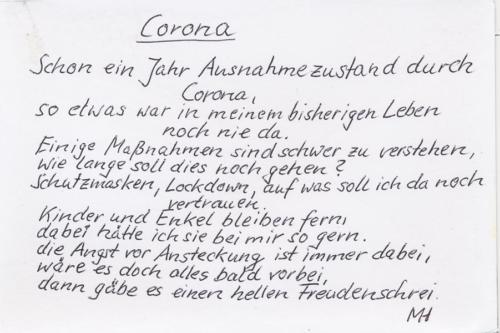 Corona
Schon ein Jahr Ausnahmezustand durch
Corona,
so etwas war in meinem bisherigen Leben
noch nie da.
Einige Maßnahmen sind schwer zu verstehen,
wie lange soll dies noch gehen?
Schutzmasken, Lockdown, auf was soll ich da noch
vertrauen.
Kinder und Enkel bleiben fern,
dabei hätte ich sie bei mir so gern.
die Angst vor Ansteckung ist immer dabei,
wäre es doch alles bald vorbei,
dann gäbe es einen hellen Freudenschrei.
MH